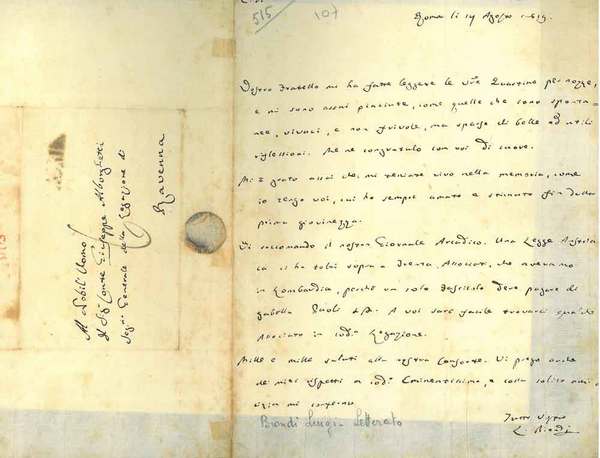 515
107
Roma li 14 Agosto 1819.
Vostro fratello mi ha fatto leggere le Quartine per nozze,
e mi sono assai piaciute, come quelle che sono sponta=
nee, vivaci, e non frivole, ma sparse di belle ed utili
riflessioni. Me ne congratulo con voi di cuore.
Mi è grato assai che mi teniate vivo nella memoria, come
io tengo voi, cui ho sempre amato e stimato fin dalla
prima giovinezza.
Vi raccomando il nostro Giornale Arcadico. Una Legge Austria
ca ci ha tolti sopra a trenta Associati, che avevamo
in Lombardia, perchè un solo fascicolo deve pagare di
gabella Paoli A voi sarà facile trovarci qualche
Associato in Legazione.
Mille e mille saluti alla vostra Consorte. Vi prego anche
de' miei rispetti a Eminentissimo, e colla solita ami
cizia mi confermo
Tutto
L. Biondi
Biondi Luigi Letterato
Al Nobil Uomo
Il Sig. Conte Giuseppe Alborghetti
Seg. Generale della Legazione di
Ravenna